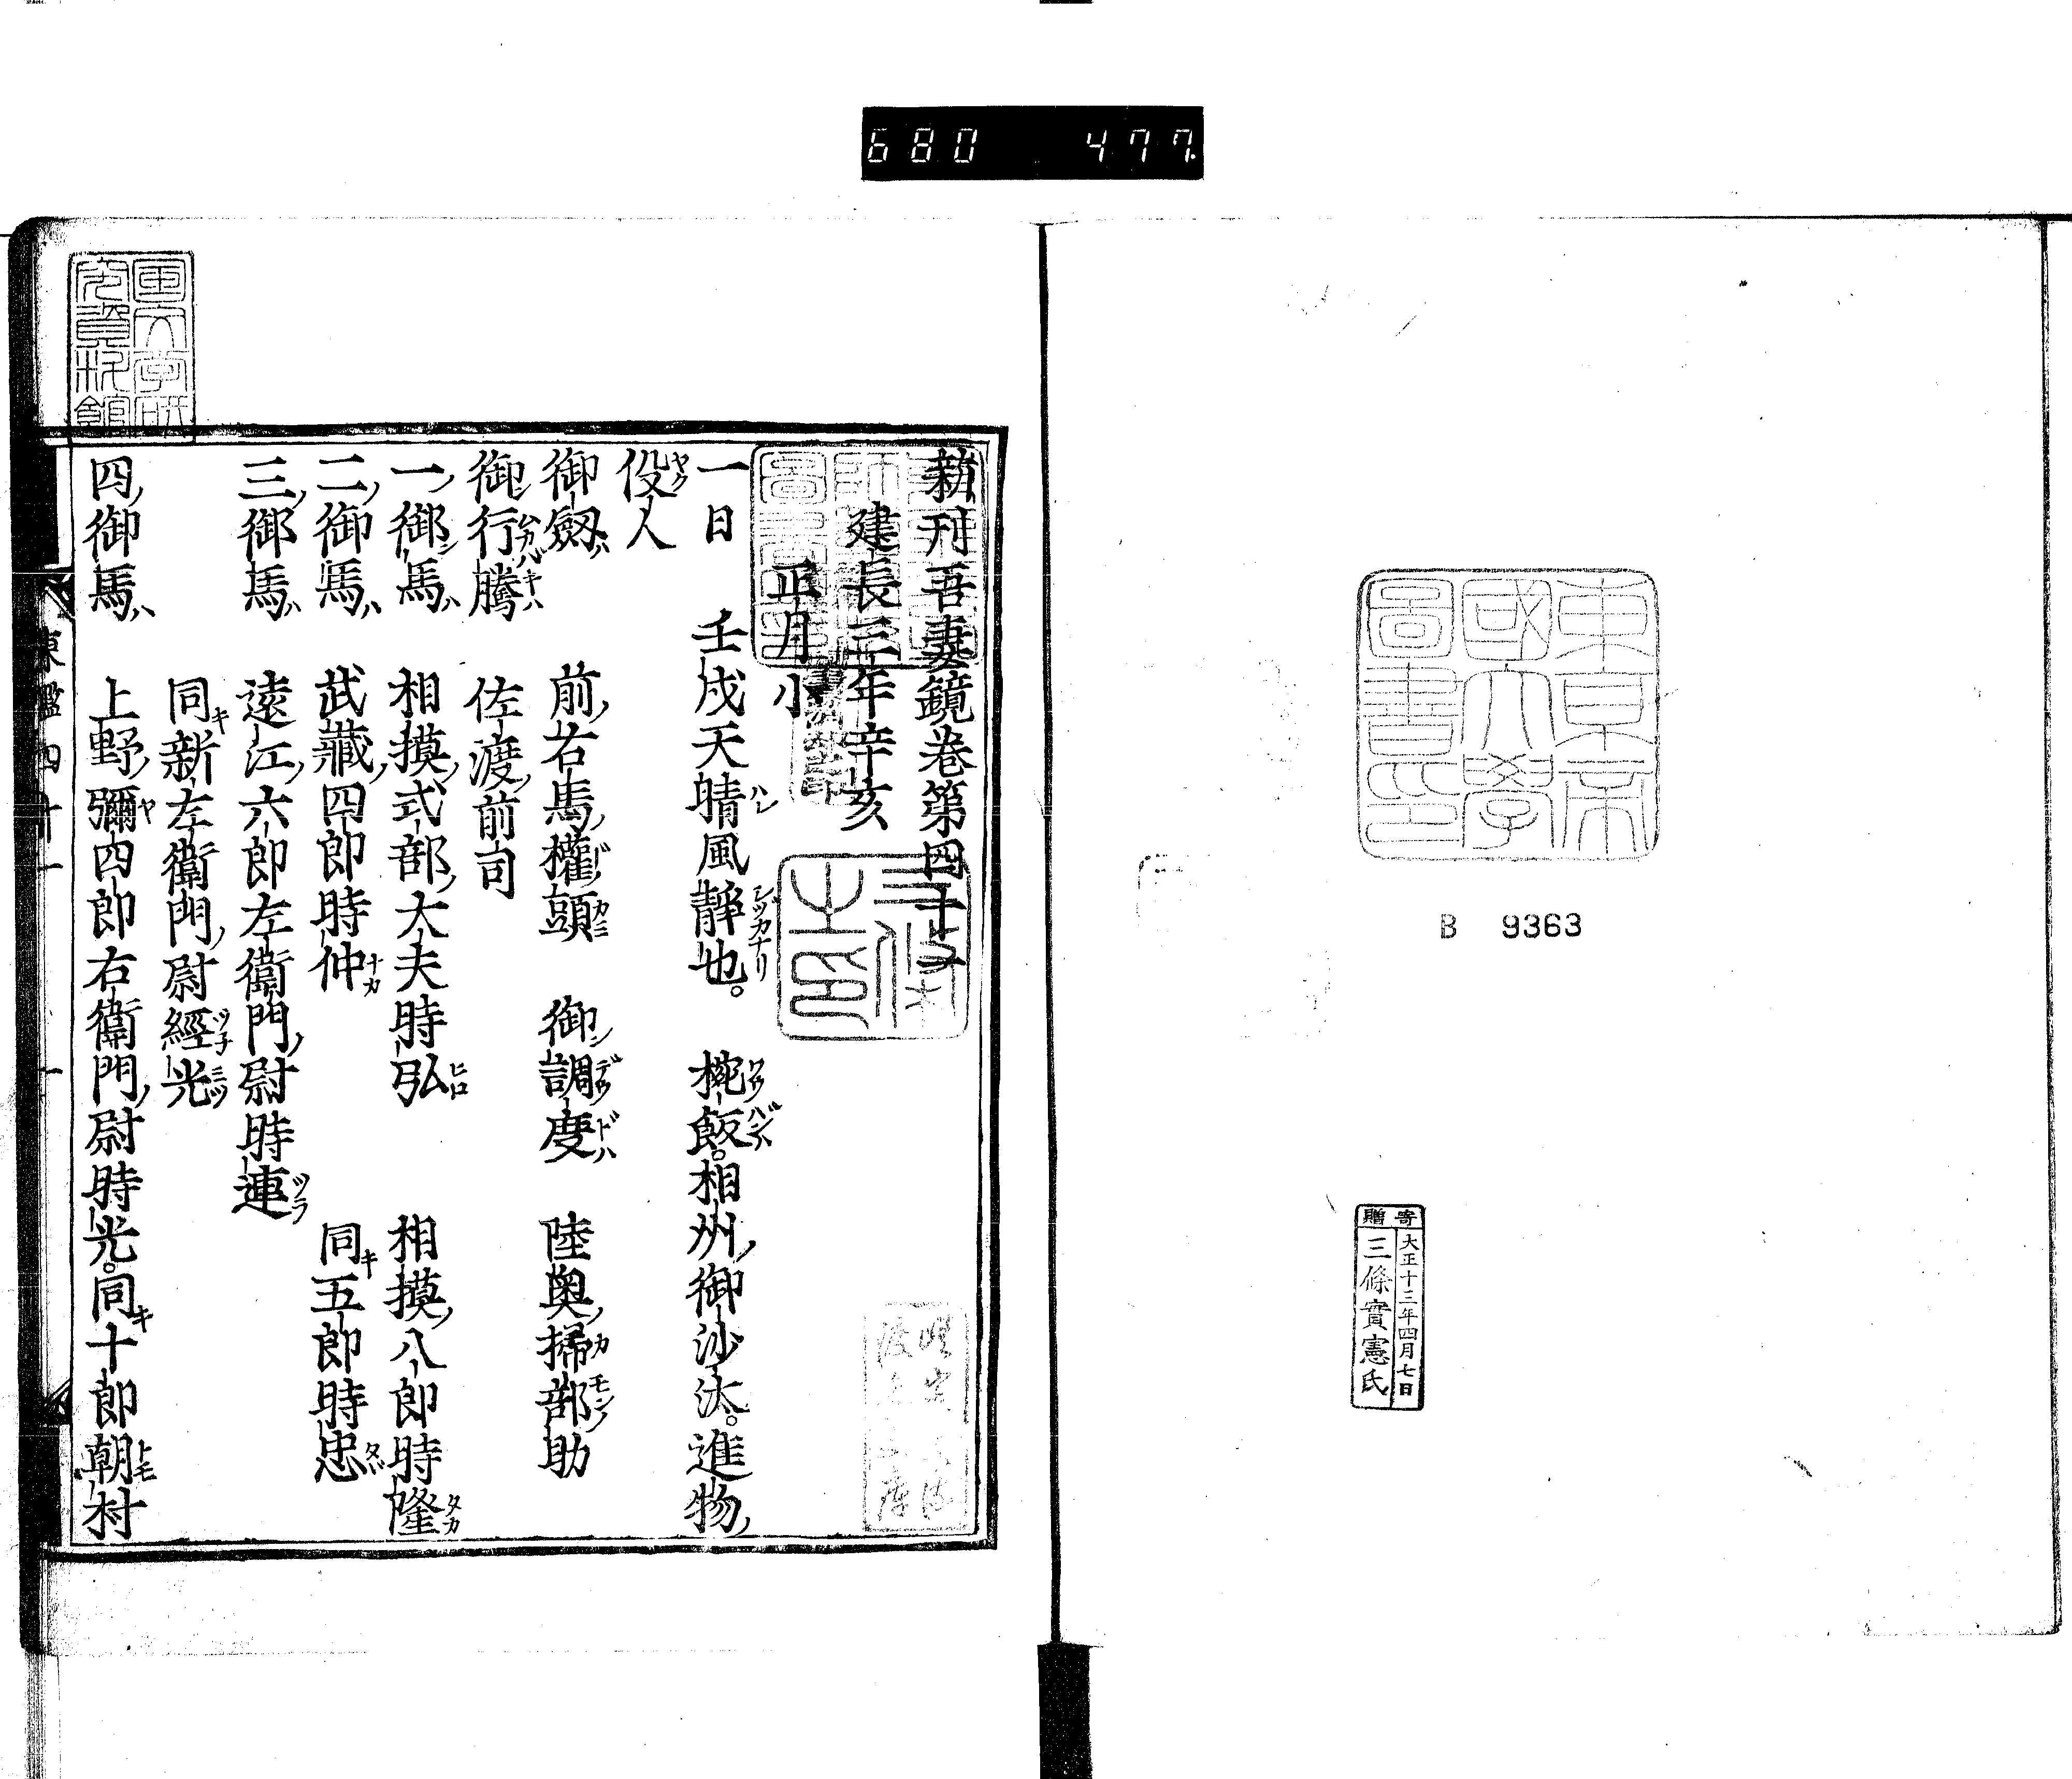 680 477
東京帝
國大學
圖書印
B 9363
寄贈
大正十三年四月七日
三條實憲氏
新刊吾妻鏡卷第四十一
建長三年辛亥
正月小
一日 壬戌天晴風靜也。 椀飯。相州御沙汰。進物
役人
御劔 前右馬權頭 御調度 陸奥掃部助
御行騰 佐渡前司
一御馬 相摸式部大夫時弘 相摸八郎時隆
二御馬 武藏四郎時仲 同五郎時忠
三御馬 遠江六郎左衞門尉時連
同新左衞門尉經光
四御馬 上野彌四郎右衞門尉時光。同十郎朝村
東鑑四十一 一